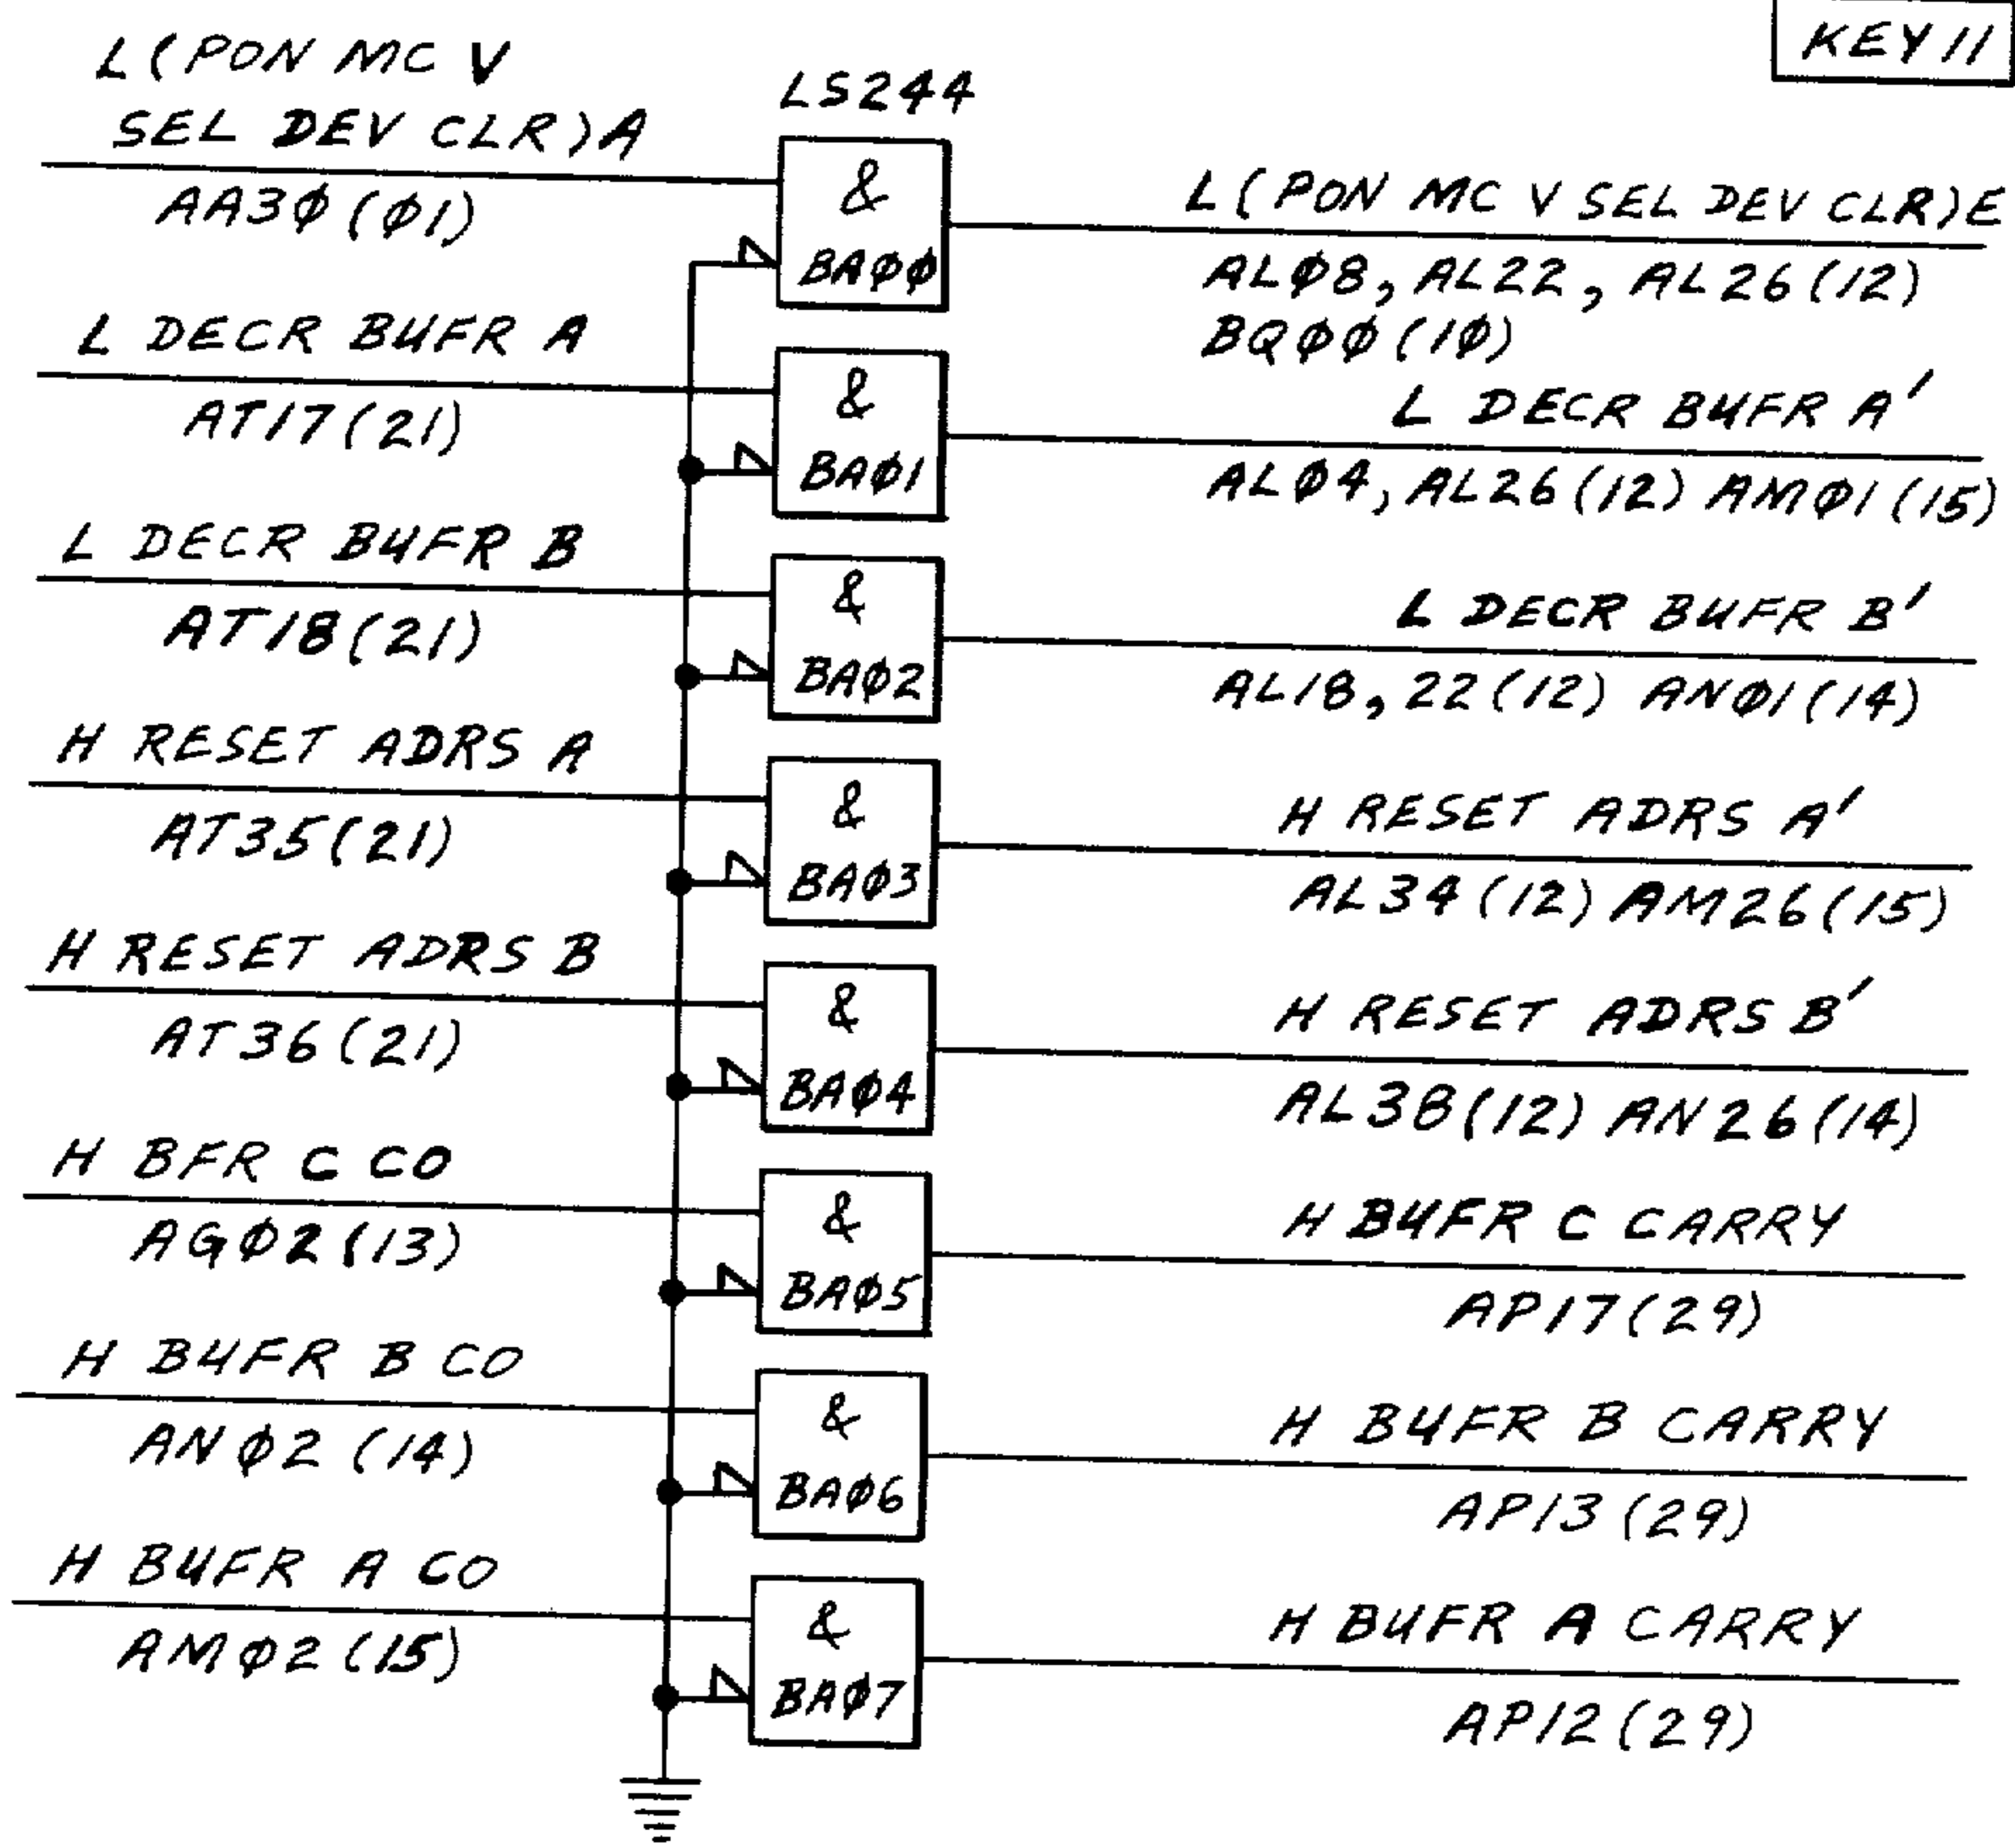 KEY 11
L (PON MC V
SEL DEV CLR) A
AA3Ø (Ø1)
LS244
&
BAØØ
L (PON MC V SEL DEV CLR) E
ALØ8, AL22, AL26 (12)
BQØØ (1Ø)
L DECR BUFR A
AT17 (21)
&
BAØ1
L DECR BUFR A'
ALØ4, AL26 (12) AMØ1 (15)
L DECR BUFR B
AT18 (21)
&
BAØ2
L DECR BUFR B'
AL18, 22 (12) ANØ1 (14)
H RESET ADRS A
AT35 (21)
&
BAØ3
H RESET ADRS A'
AL34 (12) AM26 (15)
H RESET ADRS B
AT36 (21)
&
BAØ4
H RESET ADRS B'
AL38 (12) AN26 (14)
H BFR C CO
AGØ2 (13)
&
BAØ5
H BUFR C CARRY
AP17 (29)
H BUFR B CO
ANØ2 (14)
&
BAØ6
H BUFR B CARRY
AP13 (29)
H BUFR A CO
AMØ2 (15)
&
BAØ7
H BUFR A CARRY
AP12 (29)